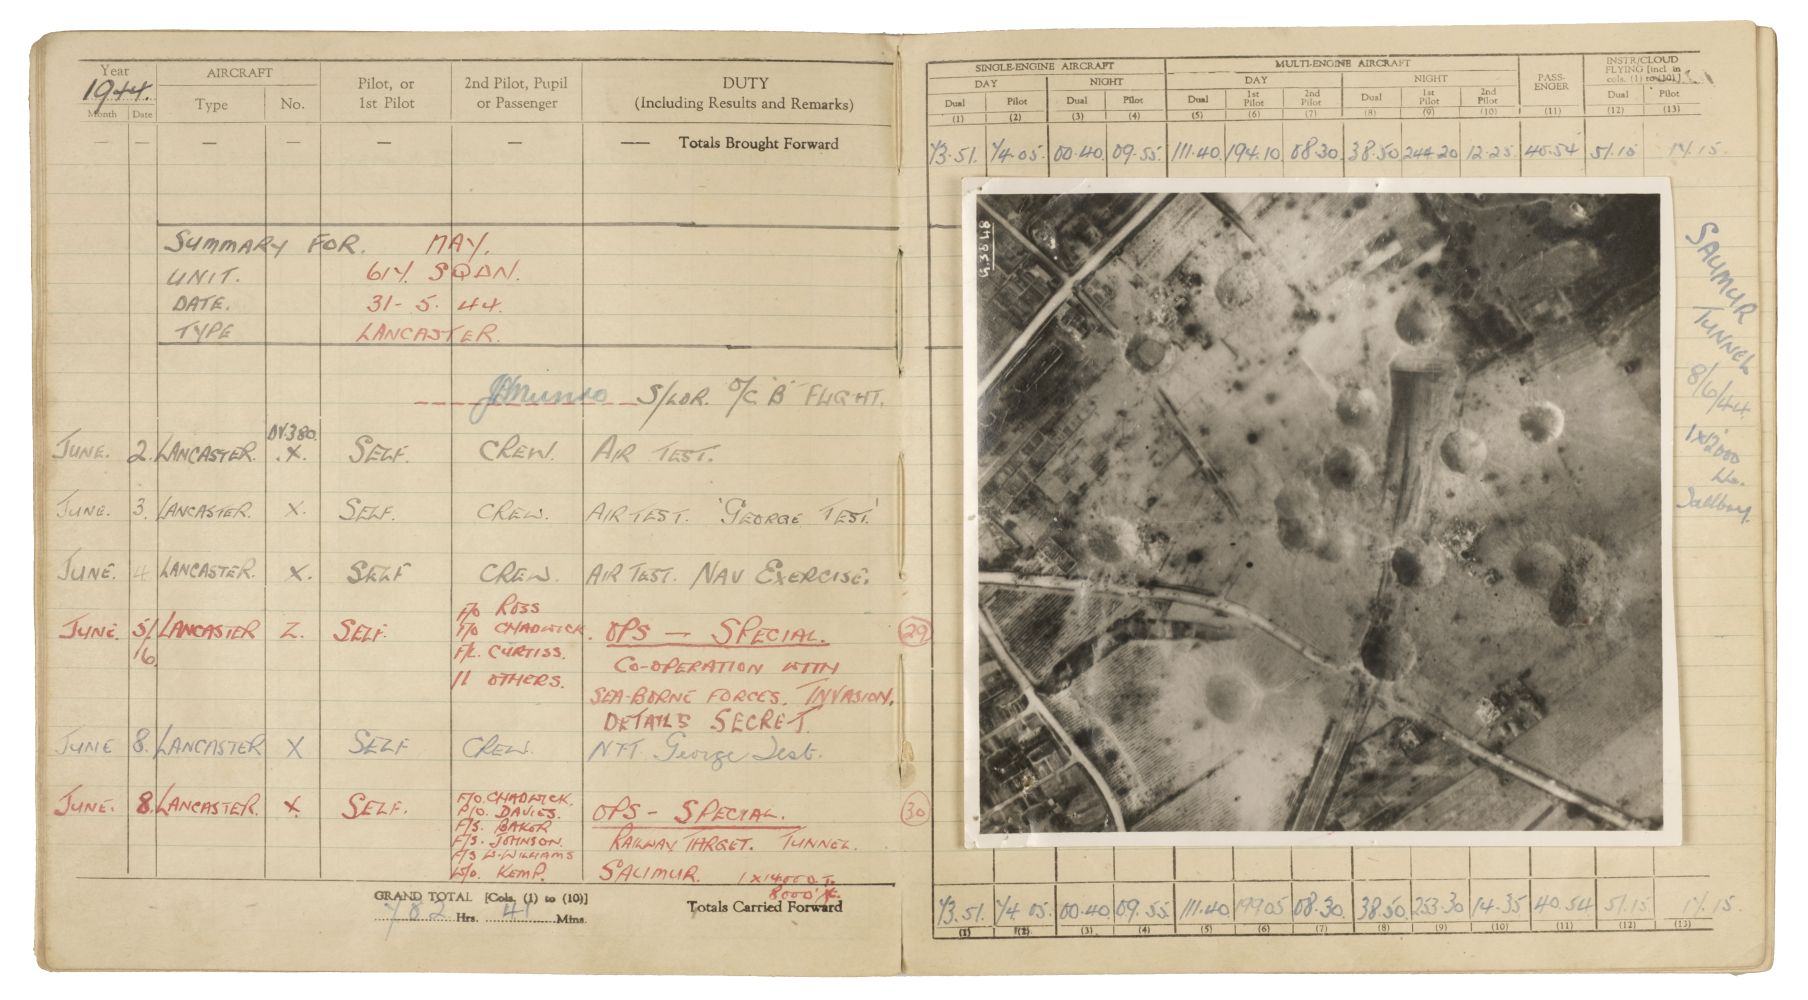 Year
1944.
Month Date
AIRCRAFT
Type No.
Pilot, or
1st Pilot
2nd Pilot, Pupil
or Passenger
DUTY
(Including Results and Remarks)
— — — — — — — Totals Brought Forward
SUMMARY FOR. MAY.
UNIT. 617 SQDN.
DATE. 31-5.44.
TYPE LANCASTER.
JMunro S/LDR. O/C 'B' FLIGHT.
DV.380.
JUNE. 2. LANCASTER. .X. SELF. CREW. AIR TEST.
JUNE. 3. LANCASTER. X. SELF. CREW. AIR TEST. 'GEORGE TEST.'
JUNE. 4 LANCASTER. X. SELF CREW. AIR TEST. NAV EXERCISE.
JUNE. 5/6. LANCASTER Z. SELF.
F/O ROSS
F/O CHADWICK.
F/L. CURTISS.
11 OTHERS.
OPS — SPECIAL. 29
CO-OPERATION WITH
SEA-BORNE FORCES. INVASION.
DETAILS SECRET.
JUNE 8. LANCASTER X SELF CREW. N.F.T. George Test.
JUNE. 8. LANCASTER. X SELF.
F/O. CHADWICK.
P/O. DAVIES.
F/S. BAKER
F/S. JOHNSON.
F/S W-WILLIAMS
W/O. KEMP.
OPS - SPECIAL. 30
RAILWAY TARGET. TUNNEL.
SAUMUR. 1 X 14000 T.
8000'
GRAND TOTAL [Cols. (1) to (10)]
702 Hrs. 41 Mins.
Totals Carried Forward
SINGLE-ENGINE AIRCRAFT
DAY NIGHT
Dual Pilot Dual Pilot
(1) (2) (3) (4)
MULTI-ENGINE AIRCRAFT
DAY NIGHT
Dual 1st Pilot 2nd Pilot Dual 1st Pilot 2nd Pilot
(5) (6) (7) (8) (9) (10)
PASS-
ENGER
(11)
INSTR/CLOUD
FLYING [incl in
cols. (1) to (10)]
Dual Pilot
(12) (13)
73.51. 74.05. 00.40. 09.55. 111.40. 194.10 08.30. 38.50 244.20 12.25. 40.54 51.15 17.15.
G.3848
SAUMUR
TUNNEL
8/6/44.
1X12000
Lb.
Tallboy.
73.51. 74.05. 00.40. 09.55. 111.40 199.05 08.30. 38.50. 253.30 14.35 40.54 51.15 17.15.
(1) (2) (3) (4) (5) (6) (7) (8) (9) (10) (11) (12) (13)